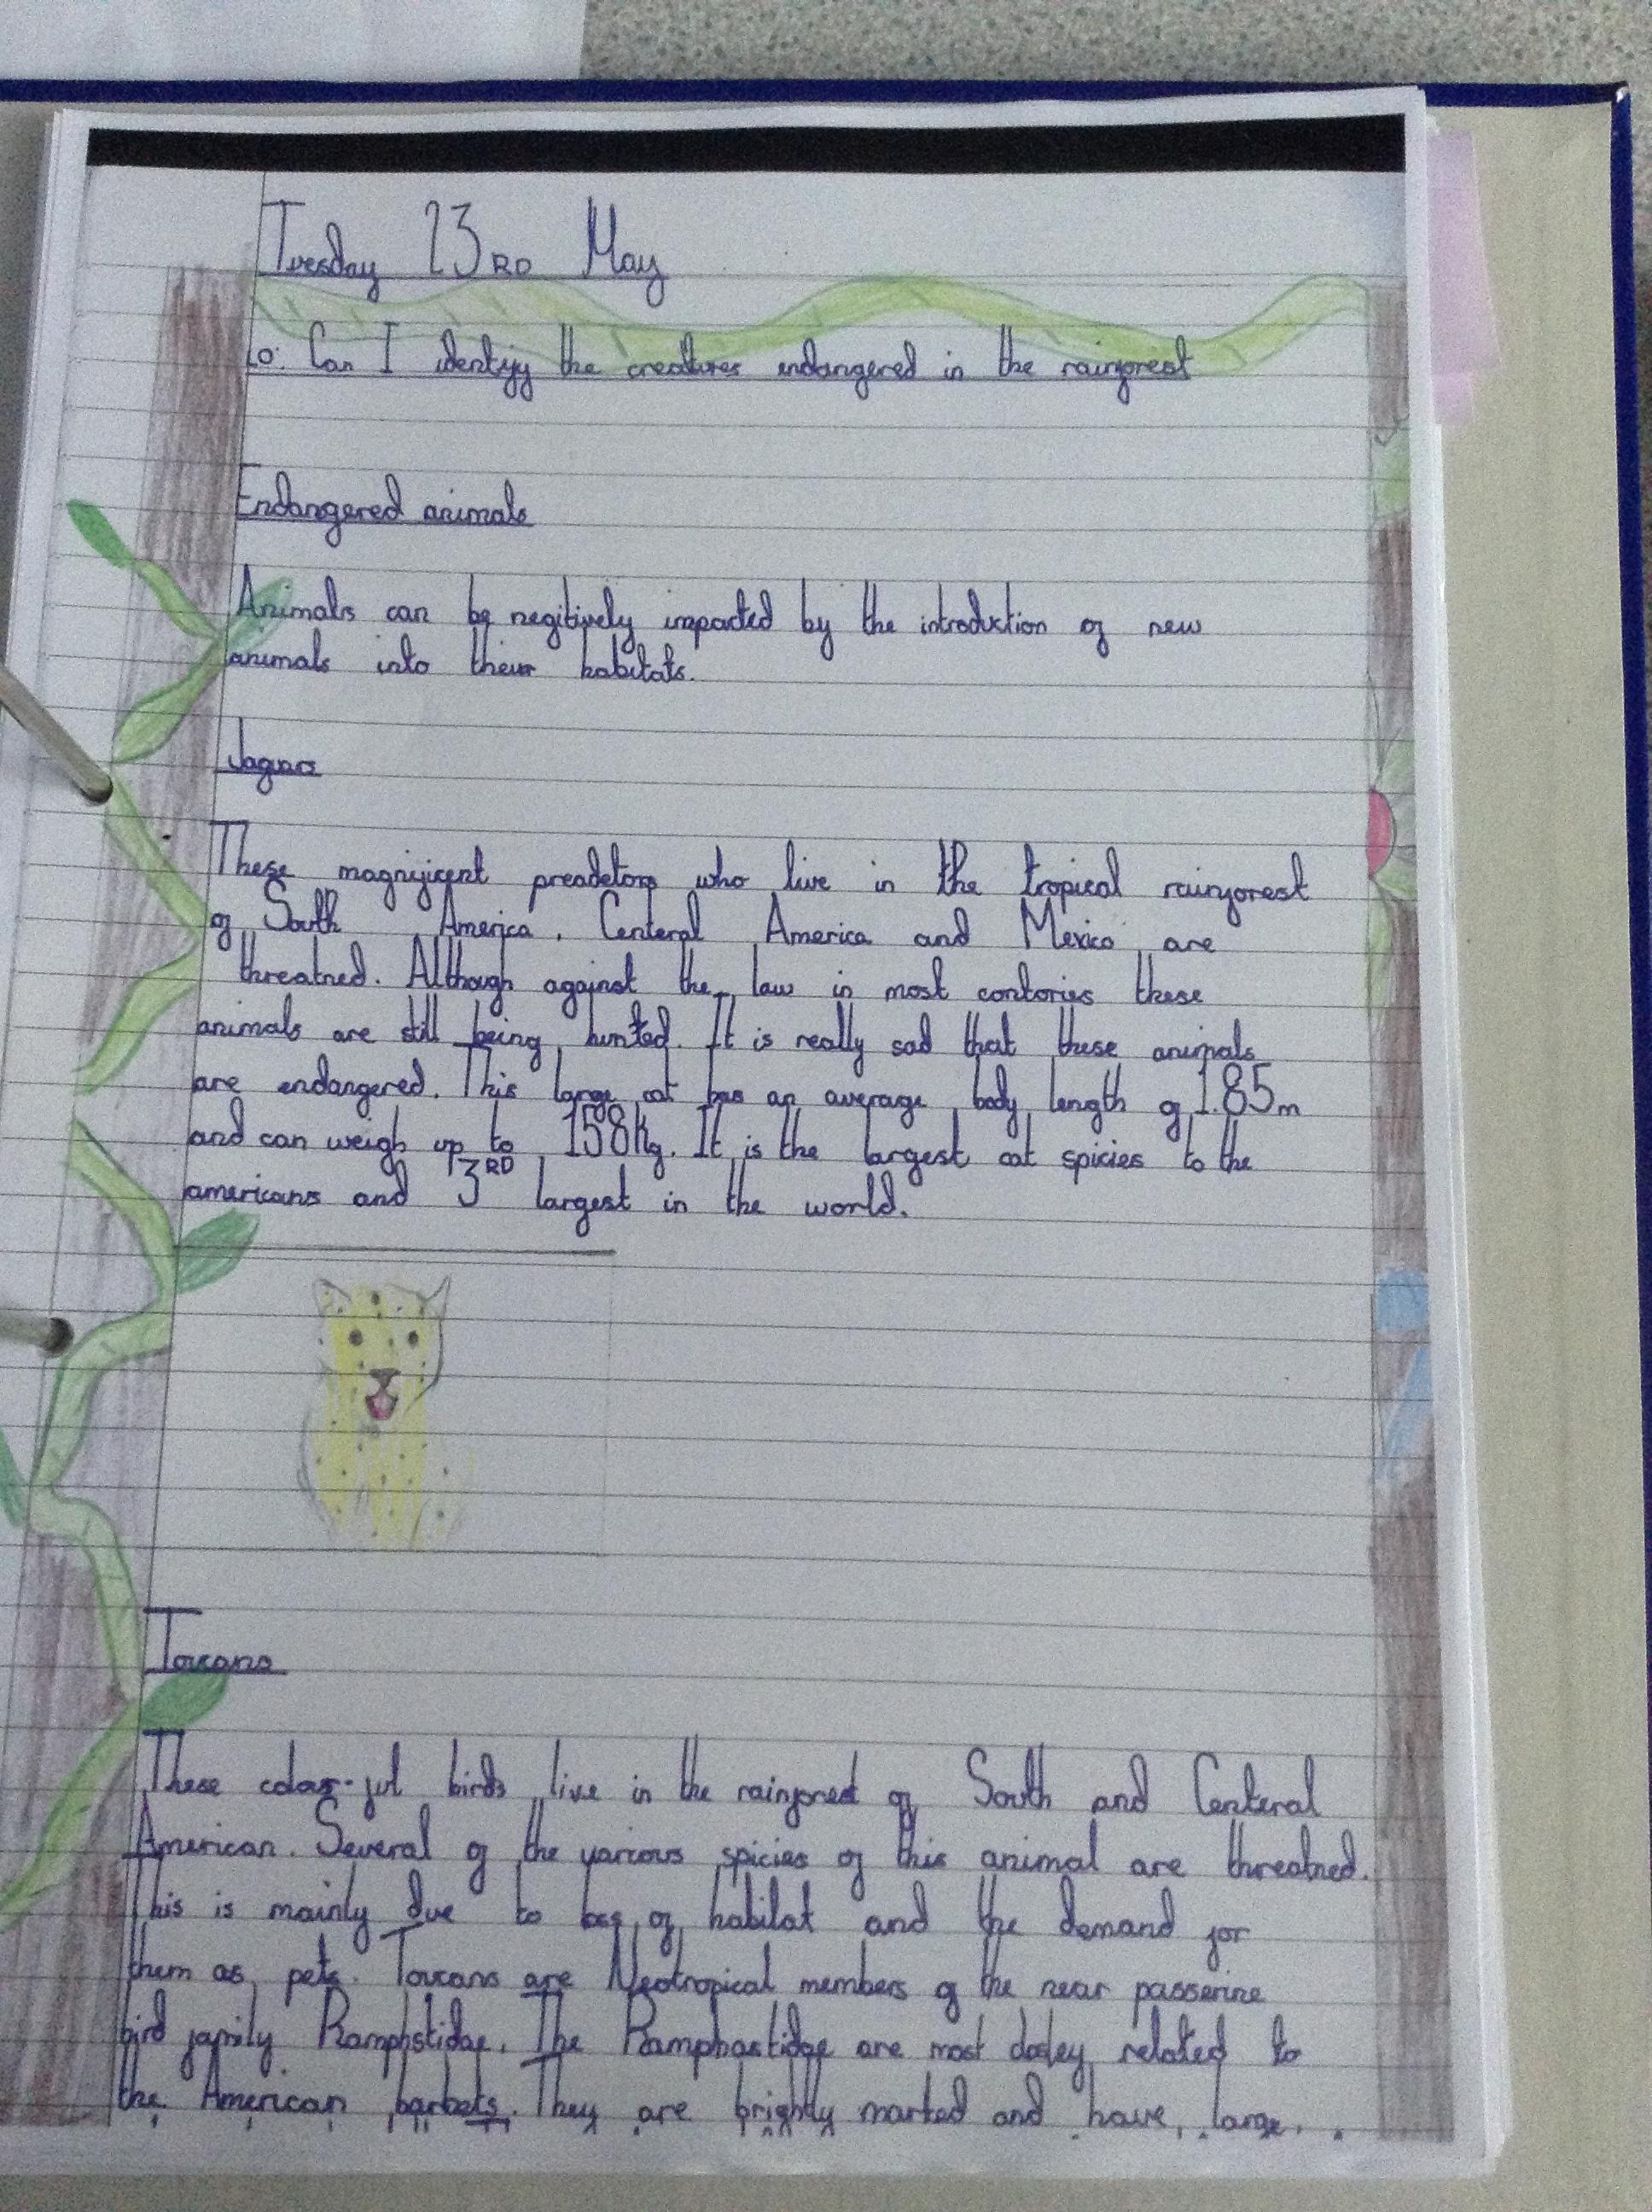 Tuesday 23RD May
LO: Can I identify the creatures endangered in the rainforest
Endangered animals
Animals can be negitively impacted by the introduction of new
animals into their habitats.
Jaguars
These magnificent preadetors who live in the tropical rainforest
of South America, Centeral America and Mexico are
threatned. Although against the law in most contories these
animals are still being hunted. It is really sad that these animals
are endangered. This large cat has an average body length of 1.85m
and can weigh up to 158kg. It is the largest cat spicies to the
americans and 3RD largest in the world.
Toucans
These colour-ful birds live in the rainforest of South and Centeral
American. Several of the various spicies of this animal are threatned.
This is mainly due to loss of habitat and the demand for
them as pets. Toucans are Neotropical members of the near passerine
bird family Ramphstidae. The Ramphastidae are most closley related to
the American barbets. They are brightly marked and have large